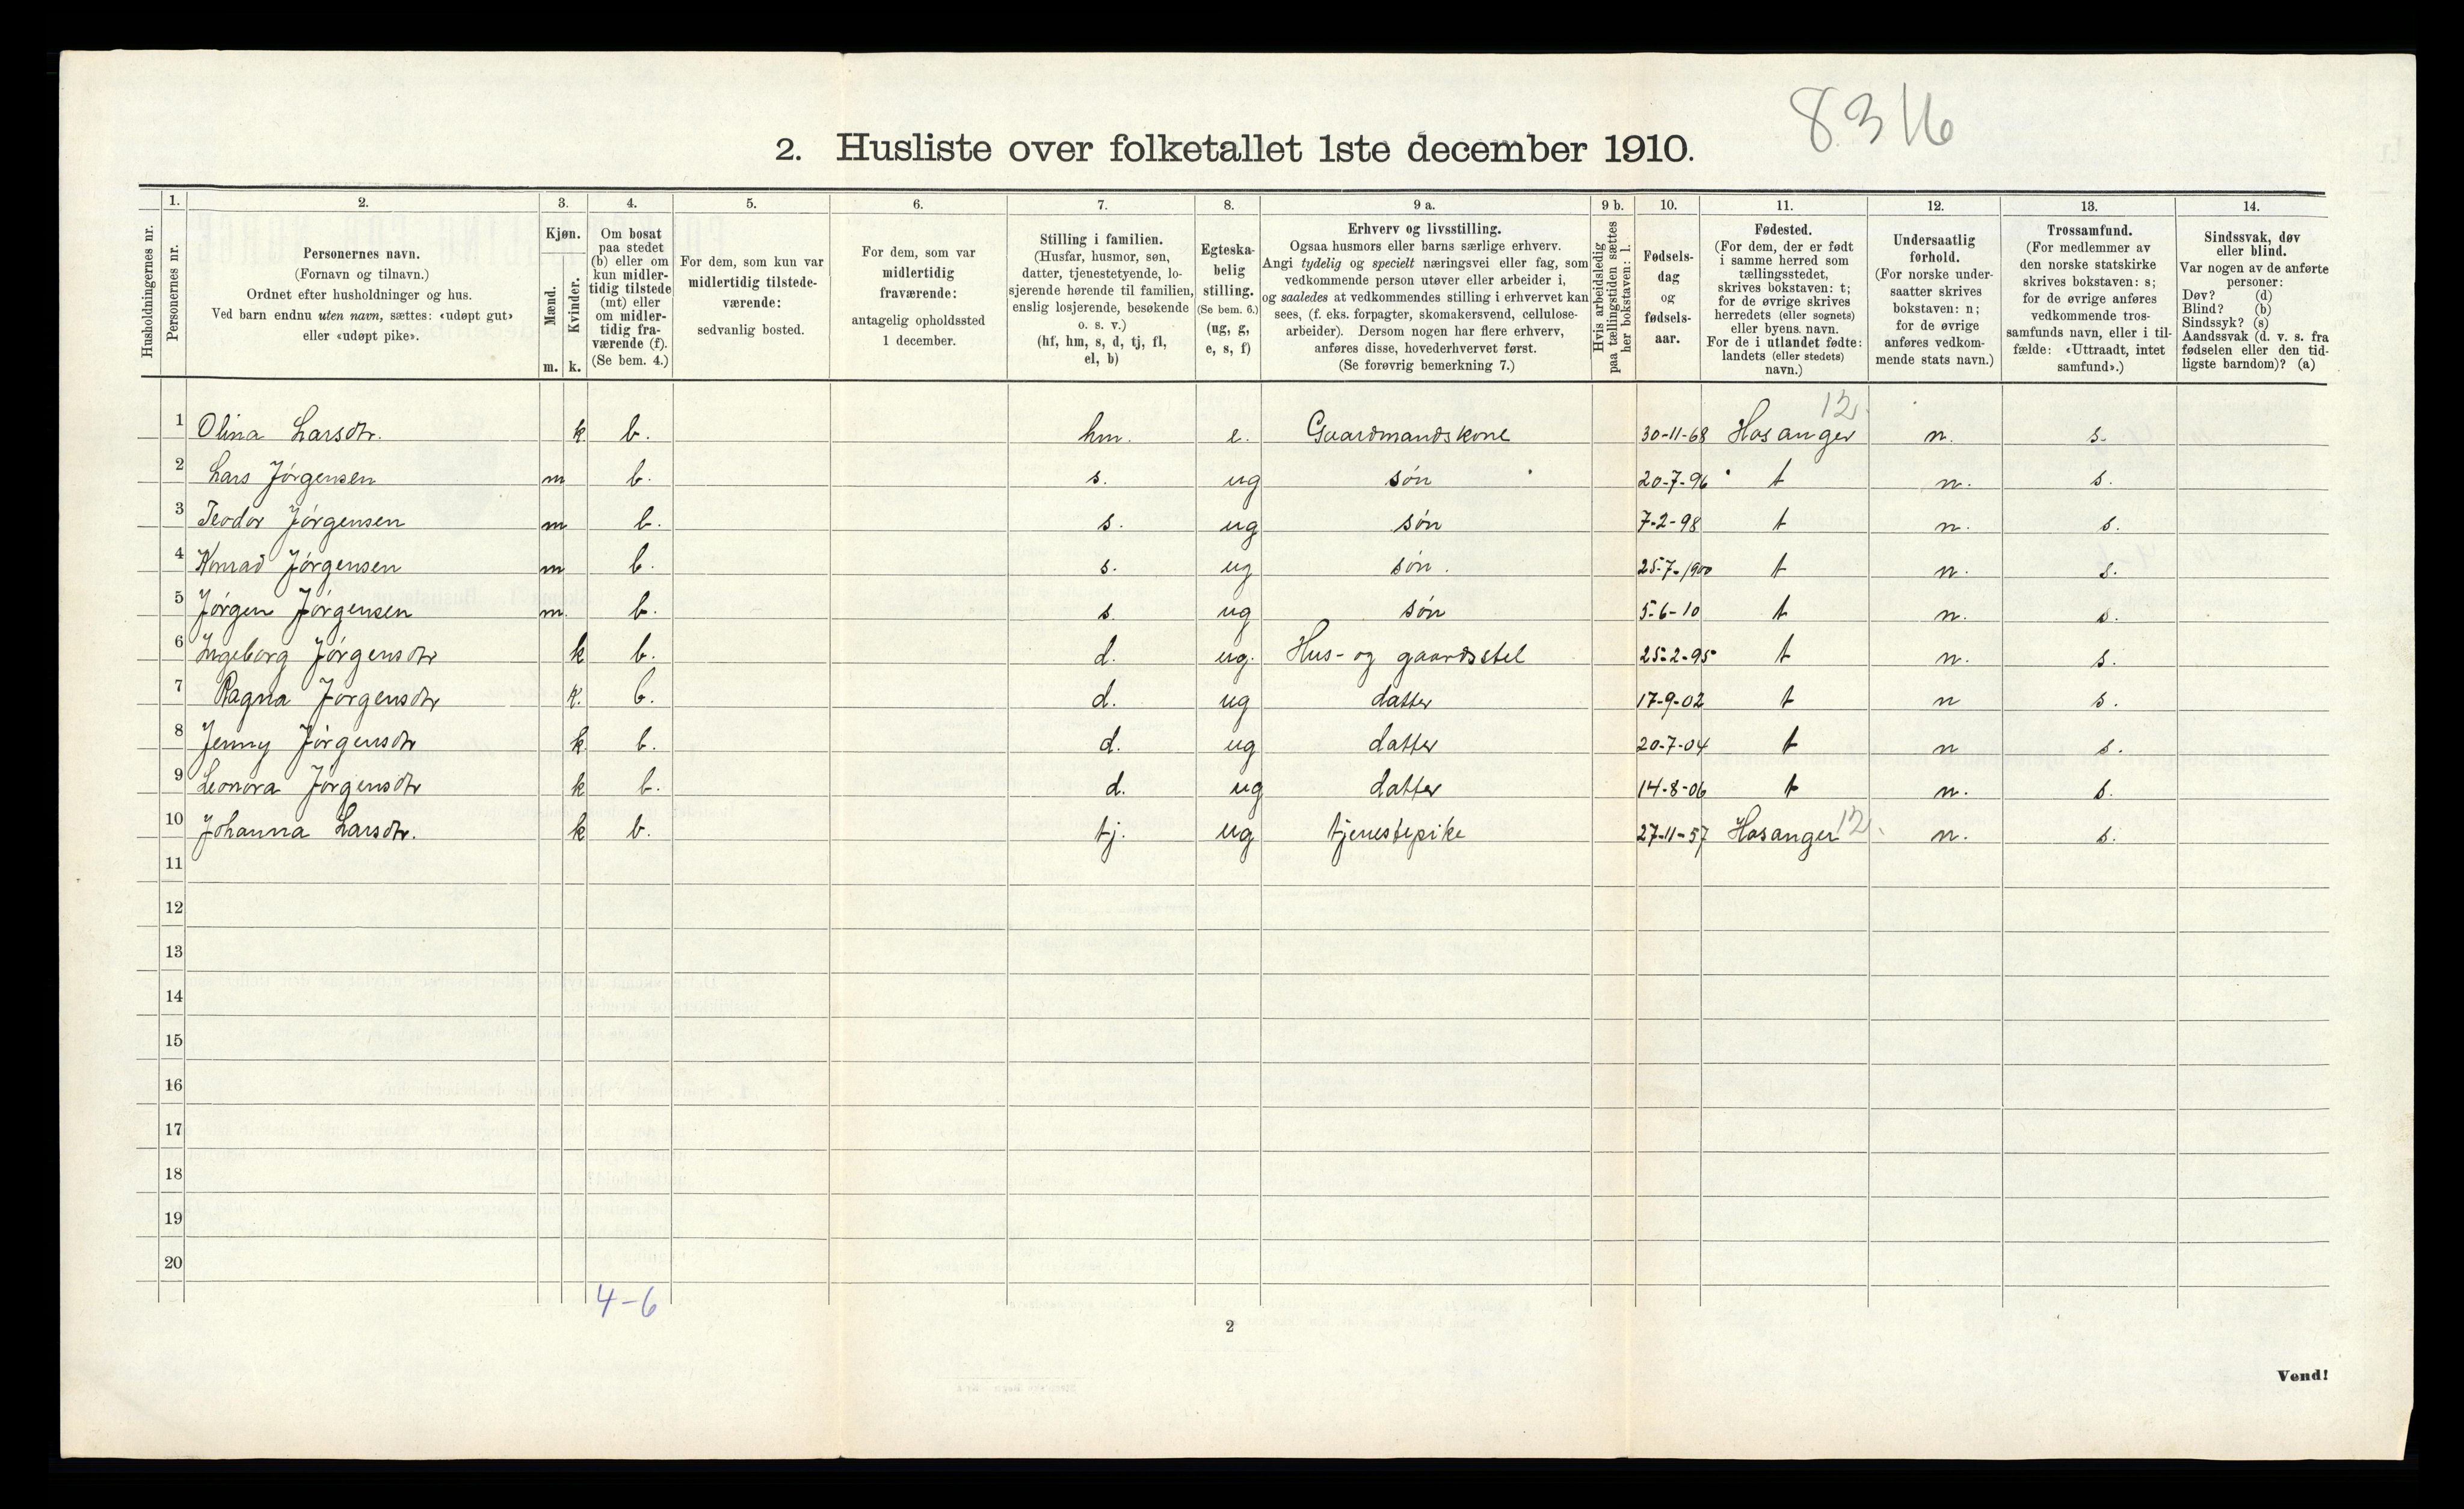 8316
2. Husliste over folketallet 1ste december 1910.
Husholdningernes nr.
1.
Personernes nr.
2.
Personernes navn.
(Fornavn og tilnavn.)
Ordnet efter husholdninger og hus.
Ved barn endnu uten navn, sættes: «udøpt gut»
eller «udøpt pike».
3.
Kjøn.
Mænd.
Kvinder.
m. k.
4.
Om bosat
paa stedet
(b) eller om
kun midler-
tidig tilstede
(mt) eller
om midler-
tidig fra-
værende (f).
(Se bem. 4.)
5.
For dem, som kun var
midlertidig tilstede-
værende:
sedvanlig bosted.
6.
For dem, som var
midlertidig
fraværende:
antagelig opholdssted
1 december.
7.
Stilling i familien.
(Husfar, husmor, søn,
datter, tjenestetyende, lo-
sjerende hørende til familien,
enslig losjerende, besøkende
o. s. v.)
(hf, hm, s, d, tj, fl,
el, b)
8.
Egteska-
belig
stilling.
(Se bem. 6.)
(ug, g,
e, s, f)
9 a.
Erhverv og livsstilling.
Ogsaa husmors eller barns særlige erhverv.
Angi tydelig og specielt næringsvei eller fag, som
vedkommende person utøver eller arbeider i,
og saaledes at vedkommendes stilling i erhvervet kan
sees, (f. eks. forpagter, skomakersvend, cellulose-
arbeider). Dersom nogen har flere erhverv,
anføres disse, hovederhvervet først.
(Se forøvrig bemerkning 7.)
9 b.
Hvis arbeidsledig
paa tællingstiden sættes
her bokstaven: l.
10.
Fødsels-
dag
og
fødsels-
aar.
11.
Fødested.
(For dem, der er født
i samme herred som
tællingsstedet,
skrives bokstaven: t;
for de øvrige skrives
herredets (eller sognets)
eller byens navn.
For de i utlandet fødte:
landets (eller stedets)
navn.)
12.
Undersaatlig
forhold.
(For norske under-
saatter skrives
bokstaven: n;
for de øvrige
anføres vedkom-
mende stats navn.)
13.
Trossamfund.
(For medlemmer av
den norske statskirke
skrives bokstaven: s;
for de øvrige anføres
vedkommende tros-
samfunds navn, eller i til-
fælde: «Uttraadt, intet
samfund».)
14.
Sindssvak, døv
eller blind.
Var nogen av de anførte
personer:
Døv? (d)
Blind? (b)
Sindssyk? (s)
Aandssvak (d. v. s. fra
fødselen eller den tid-
ligste barndom)? (a)
12.
1 Olina Larsdtr. k b. hm. e. Gaardmandskone 30-11-68 Hosanger n. s.
2 Lars Jørgensen m b. s. ug søn 20-7-96 t n. s.
3 Teodor Jørgensen m b. s. ug søn 7-2-98 t n. s.
4 Konrad Jørgensen m b. s. ug søn. 25-7-1900 t n. s.
5 Jørgen Jørgensen m. b. s. ug søn 5-6-10 t n. s.
6 Ingeborg Jørgensdtr k b. d. ug. Hus- og gaardsstel 25-2-95 t n. s.
7 Ragna Jørgensdtr k. b. d. ug datter 17-9-02 t n s.
8 Jenny Jørgensdtr k b. d. ug datter 20-7-04 t n s.
9 Leonora Jørgensdtr k b. d. ug datter 14-8-06 t n. s.
10 Johanna Larsdtr. k b. tj. ug tjenestepike 27-11-57 Hosanger 12. n. s.
11
12
13
14
15
16
17
18
19
20
4-6
2
Vend!